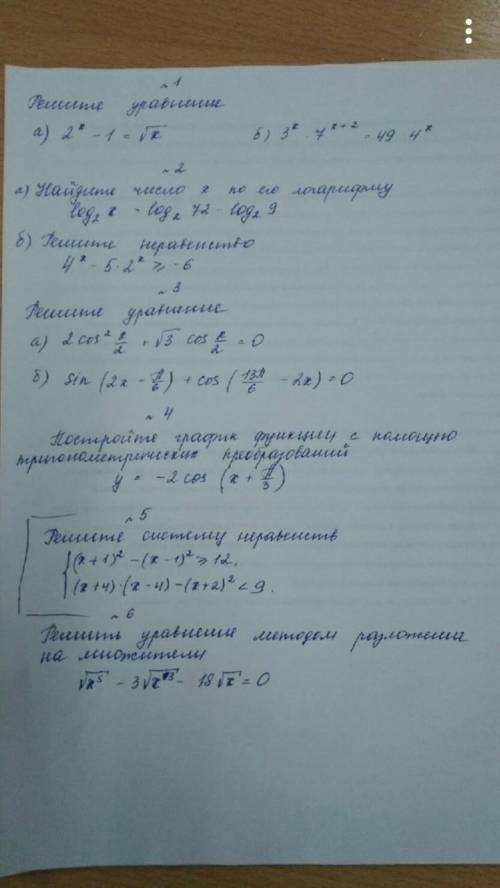 ~1
Решите уравнение
а) 2ˣ - 1 = √x б) 3ˣ · 7ˣ⁺² = 49 4ˣ
~2
а) Найдите число x по его логарифму
log₂ x = log₂ 72 - log₂ 9
б) Решите неравенство
4ˣ - 5·2ˣ ≥ -6
~3
Решите уравнение
а) 2 cos² x/2 + √3 cos x/2 = 0
б) sin (2x - π/6) + cos (13π/6 - 2x) = 0
~4
Постройте график функции с помощью
тригонометрических преобразований
y = -2 cos (x + π/3)
~5
Решите систему неравенств
{(x+1)² - (x-1)² ≥ 12,
(x+4)·(x-4) - (x+2)² < 9.
~6
Решить уравнение методом разложение
на множители
√x⁵ - 3√x³ - 18√x = 0